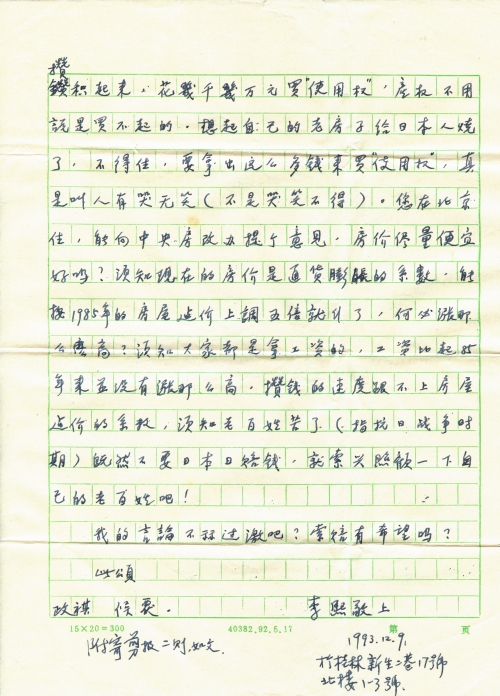 攒
鑽积起来，花幾千幾万元買"使用权"，産权不用
説是買不起的。想起自己的老房子给日本人燒
了，不得住，要拿出这么多钱来買"使用权"，真
是叫人有哭无笑（不是哭笑不得）。您在北京
住，能向中央房改办提个意见，房价尽量便宜
好吗？须知现在的房价是通貨膨脹的系数，能
按1985年的房屋造价上調五倍就行了，何必漲那
么高？须知大家都是拿工資的，工資比起85
年来並没有漲那么高，攢钱的速度跟不上房屋
造价的系数，须知老百姓苦了（指抗日战争时
期）既然不要日本日賠钱，就索兴照顧一下自
己的老百姓吧！
我的言論不算过激吧？索賠有希望吗？
此頌
政祺 候复。 李熙敬上
15×20=300 40382.92.5.17 第 页
附寄剪报二则，如文。
1993.12.9.
於桂林新生二巷17號
北楼1-3號